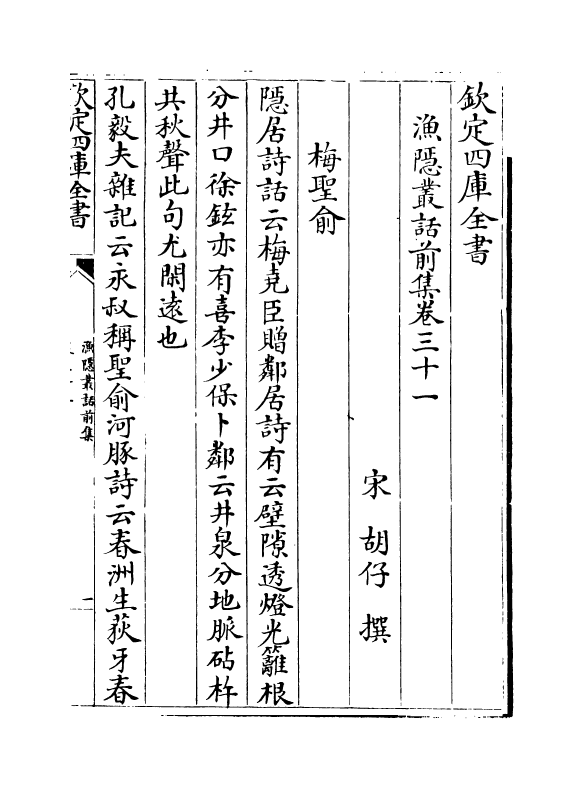 欽定四庫全書
漁隱叢話前集卷三十一
宋 胡仔 撰
梅聖俞
隱居詩話云梅堯臣贈鄰居詩有云壁隙透燈光籬根
分井口徐鉉亦有喜李少保卜鄰云井泉分地脈砧杵
共秋聲此句尤閑逺也
孔毅夫雜記云永叔稱聖俞河豚詩云春洲生荻牙春
欽定四庫全書
漁隱叢話前集
一